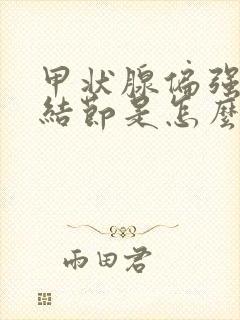 甲状腺偏强
結節是怎麼
雨田君